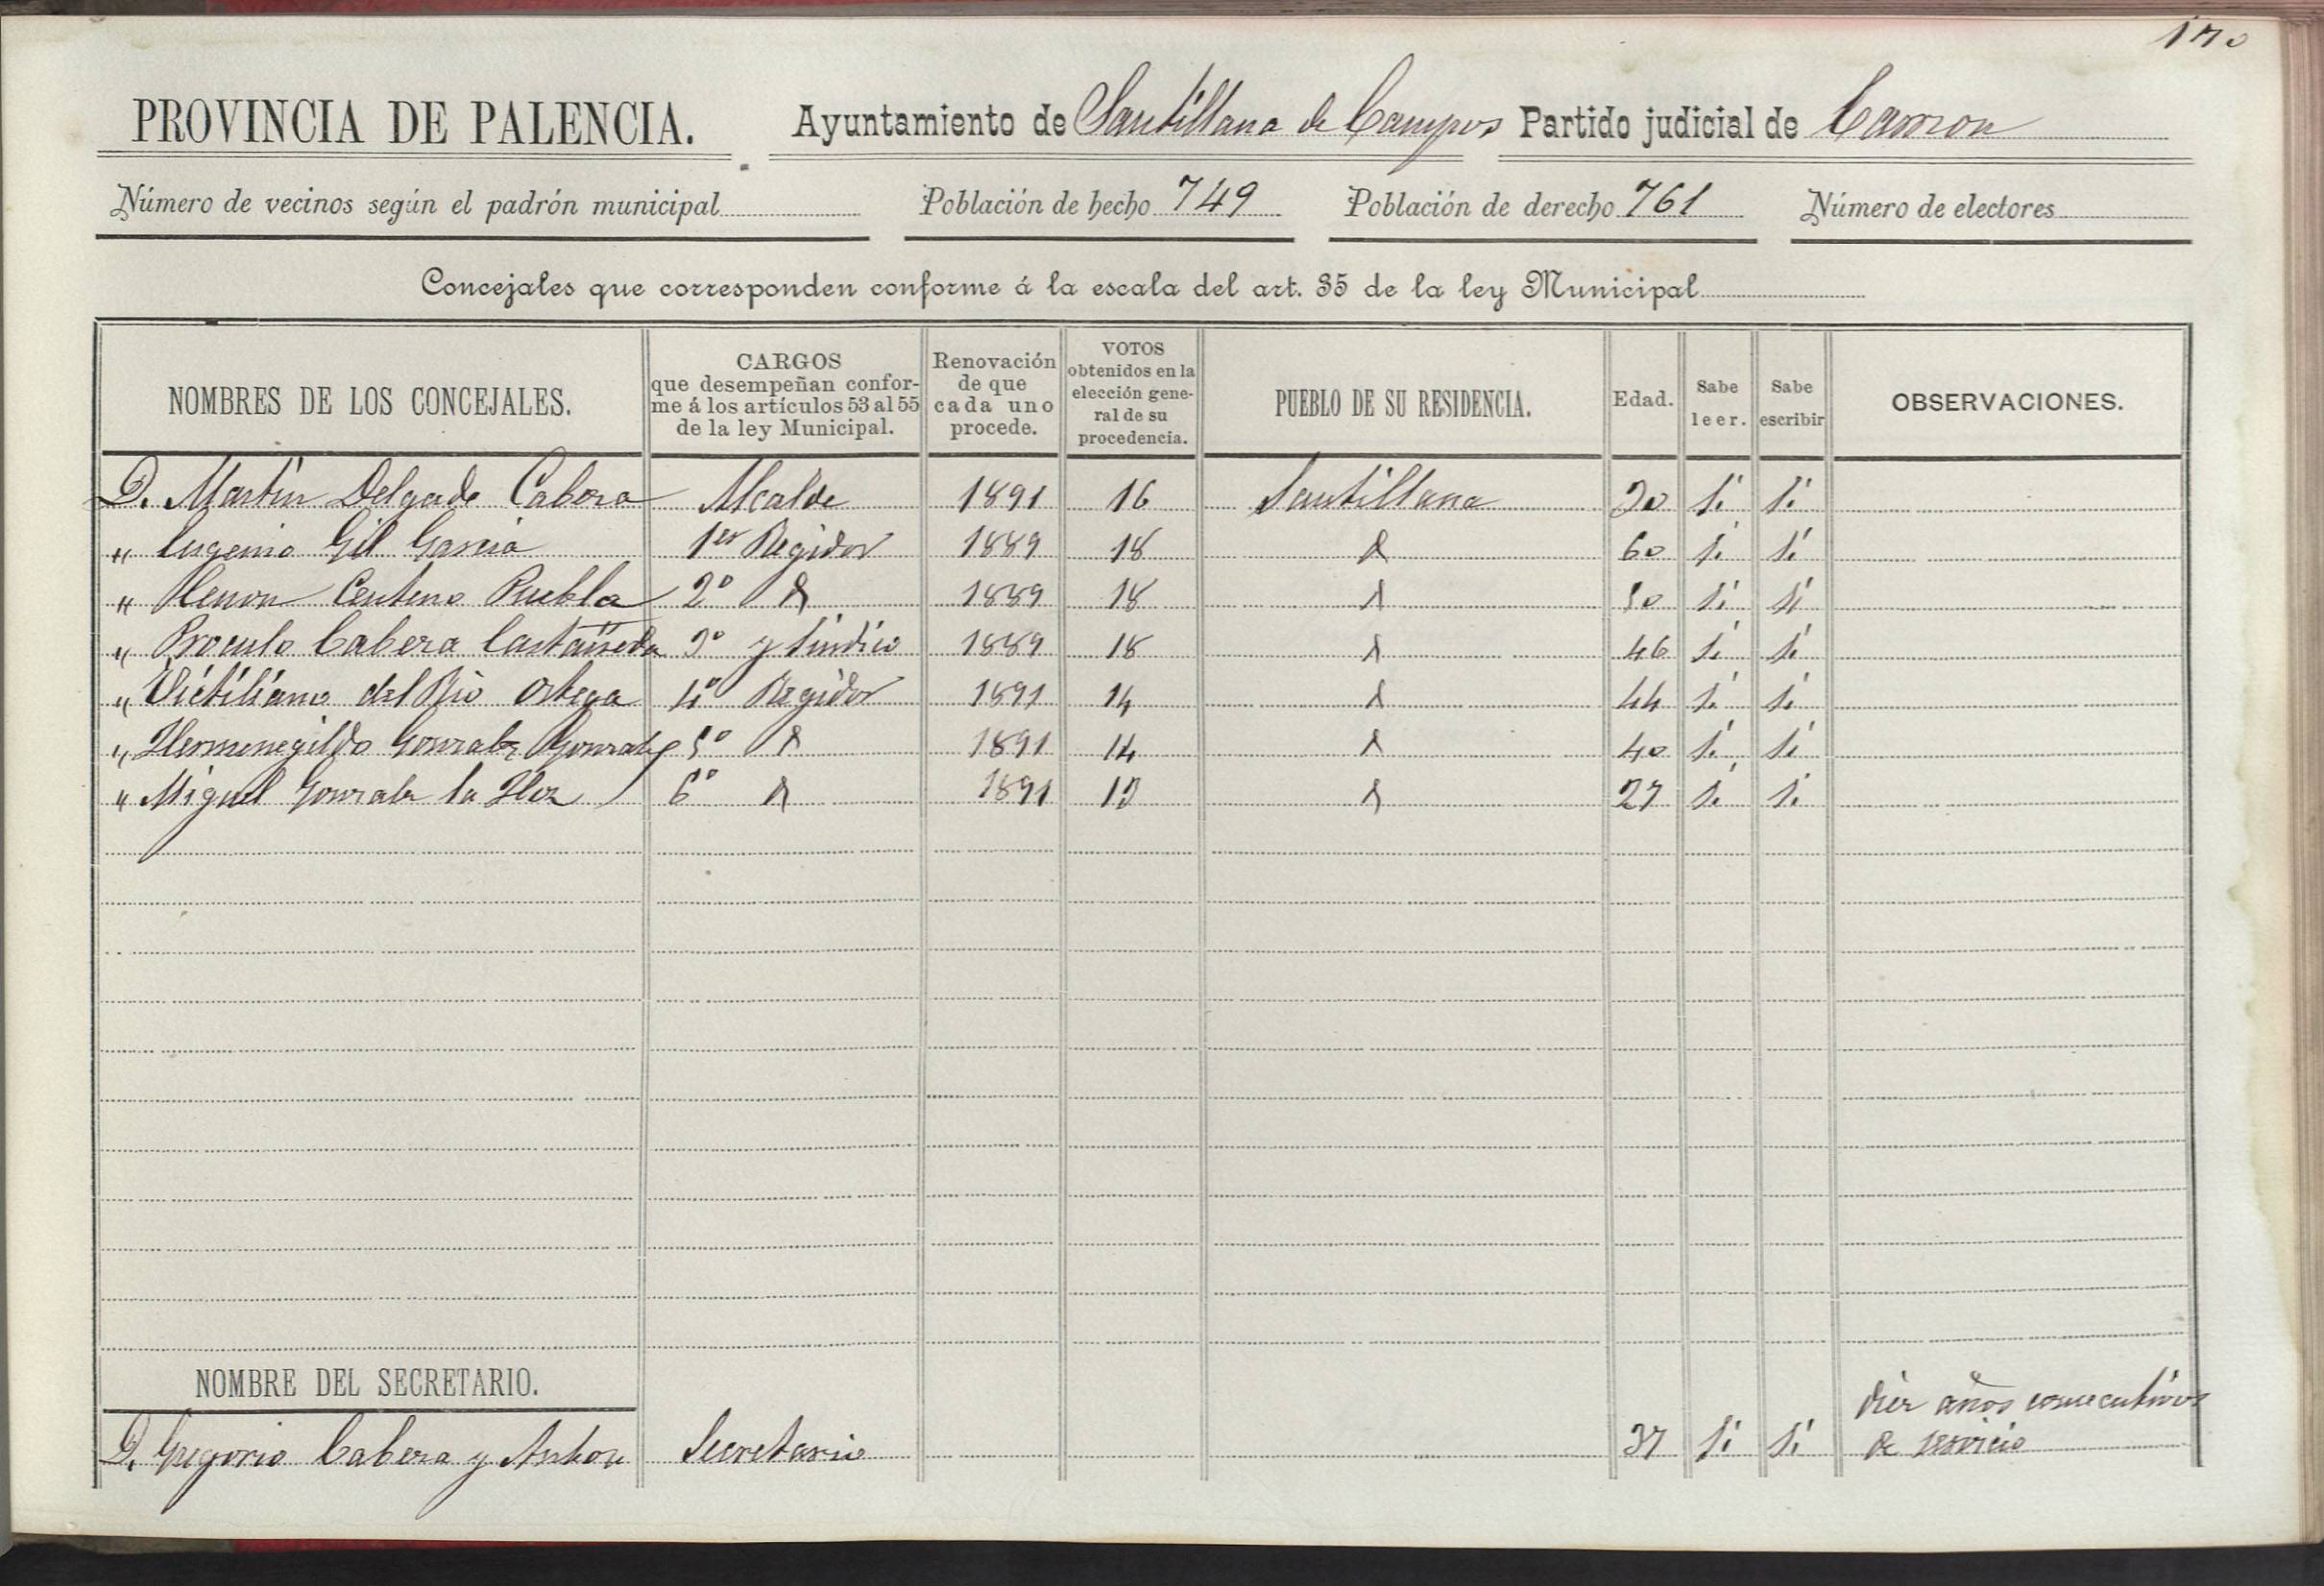 170
PROVINCIA DE PALENCIA. Ayuntamiento de Santillana de Campos Partido judicial de Carrion
Número de vecinos según el padrón municipal Población de hecho 749 Población de derecho 761 Número de electores
Concejales que corresponden conforme á la escala del art. 35 de la ley Municipal
NOMBRES DE LOS CONCEJALES. CARGOS que desempeñan conforme á los artículos 53 al 55 de la ley Municipal. Renovación de que cada uno procede. VOTOS obtenidos en la elección general de su procedencia. PUEBLO DE SU RESIDENCIA. Edad. Sabe leer. Sabe escribir OBSERVACIONES.
D. Martin Delgado Cabera Alcalde 1891 16 Santillana 30 Si Si
" Eugenio Gil Garcia 1er Regidor 1889 18 60 Si Si
" Centeno Puebla 2º 1889 18 50 Si Si
" Proculo Cabera Castañeda 3º y Sindico 1889 18 46 Si Si
" del Rio Ortega 4º Regidor 1891 14 44 Si Si
" Hermenegildo Gonzalez Gonzalez 5º 1891 14 40 Si Si
" Miguel Gonzalez la Hoz 6º 1891 13 27 Si Si
NOMBRE DEL SECRETARIO.
D. Gregorio Cabera y Anton Secretario 37 Si Si diez años consecutivos
de servicio